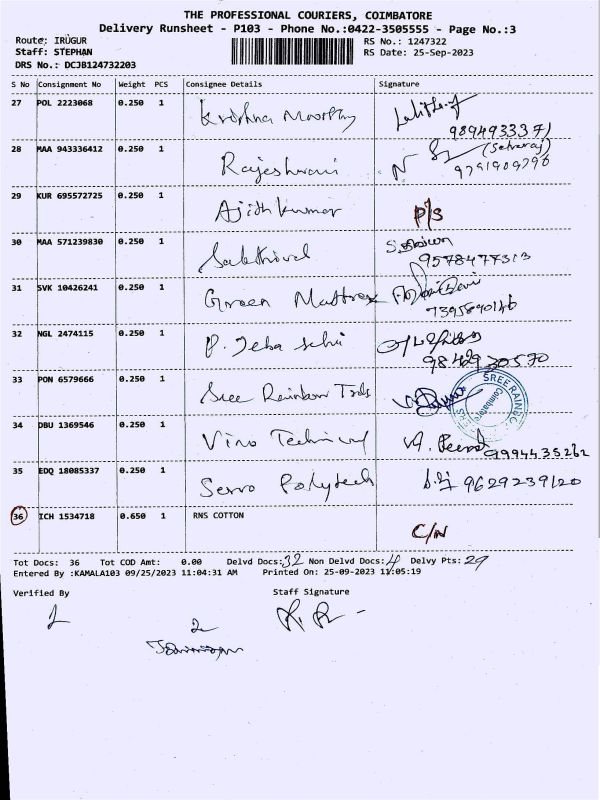 THE PROFESSIONAL COURIERS, COIMBATORE
Delivery Runsheet - P103 - Phone No.:0422-3505555 - Page No.:3
Route: IRUGUR RS No.: 1247322
Staff: STEPHAN RS Date: 25-Sep-2023
DRS No.: DCJB124732203
S No Consignment No Weight PCS Consignee Details Signature
27 POL 2223068 0.250 1 Krishna Moorthy
9894933371
28 MAA 943336412 0.250 1 Rajeshwari (Selvaraj)
9791909796
29 KUR 695572725 0.250 1 Ajithkumar P/S
30 MAA 571239830 0.250 1 Sakthivel
9578477313
31 SVK 10426241 0.250 1 Green Mattress
7395890146
32 NGL 2474115 0.250 1 P. Jeba
9842930570
33 PON 6579666 0.250 1 Sree Rainbow Tools SREE RAINBO
Coimbatore
34 DBU 1369546 0.250 1 Vino Technical
9994435262
35 EDQ 18085337 0.250 1 Servo Polytech 9629239120
36 ICH 1534718 0.650 1 RNS COTTON C/N
Tot Docs: 36 Tot COD Amt: 0.00 Delvd Docs:32 Non Delvd Docs:4 Delvy Pts:29
Entered By :KAMALA103 09/25/2023 11:04:31 AM Printed On: 25-09-2023 11:05:19
Verified By Staff Signature
1
2